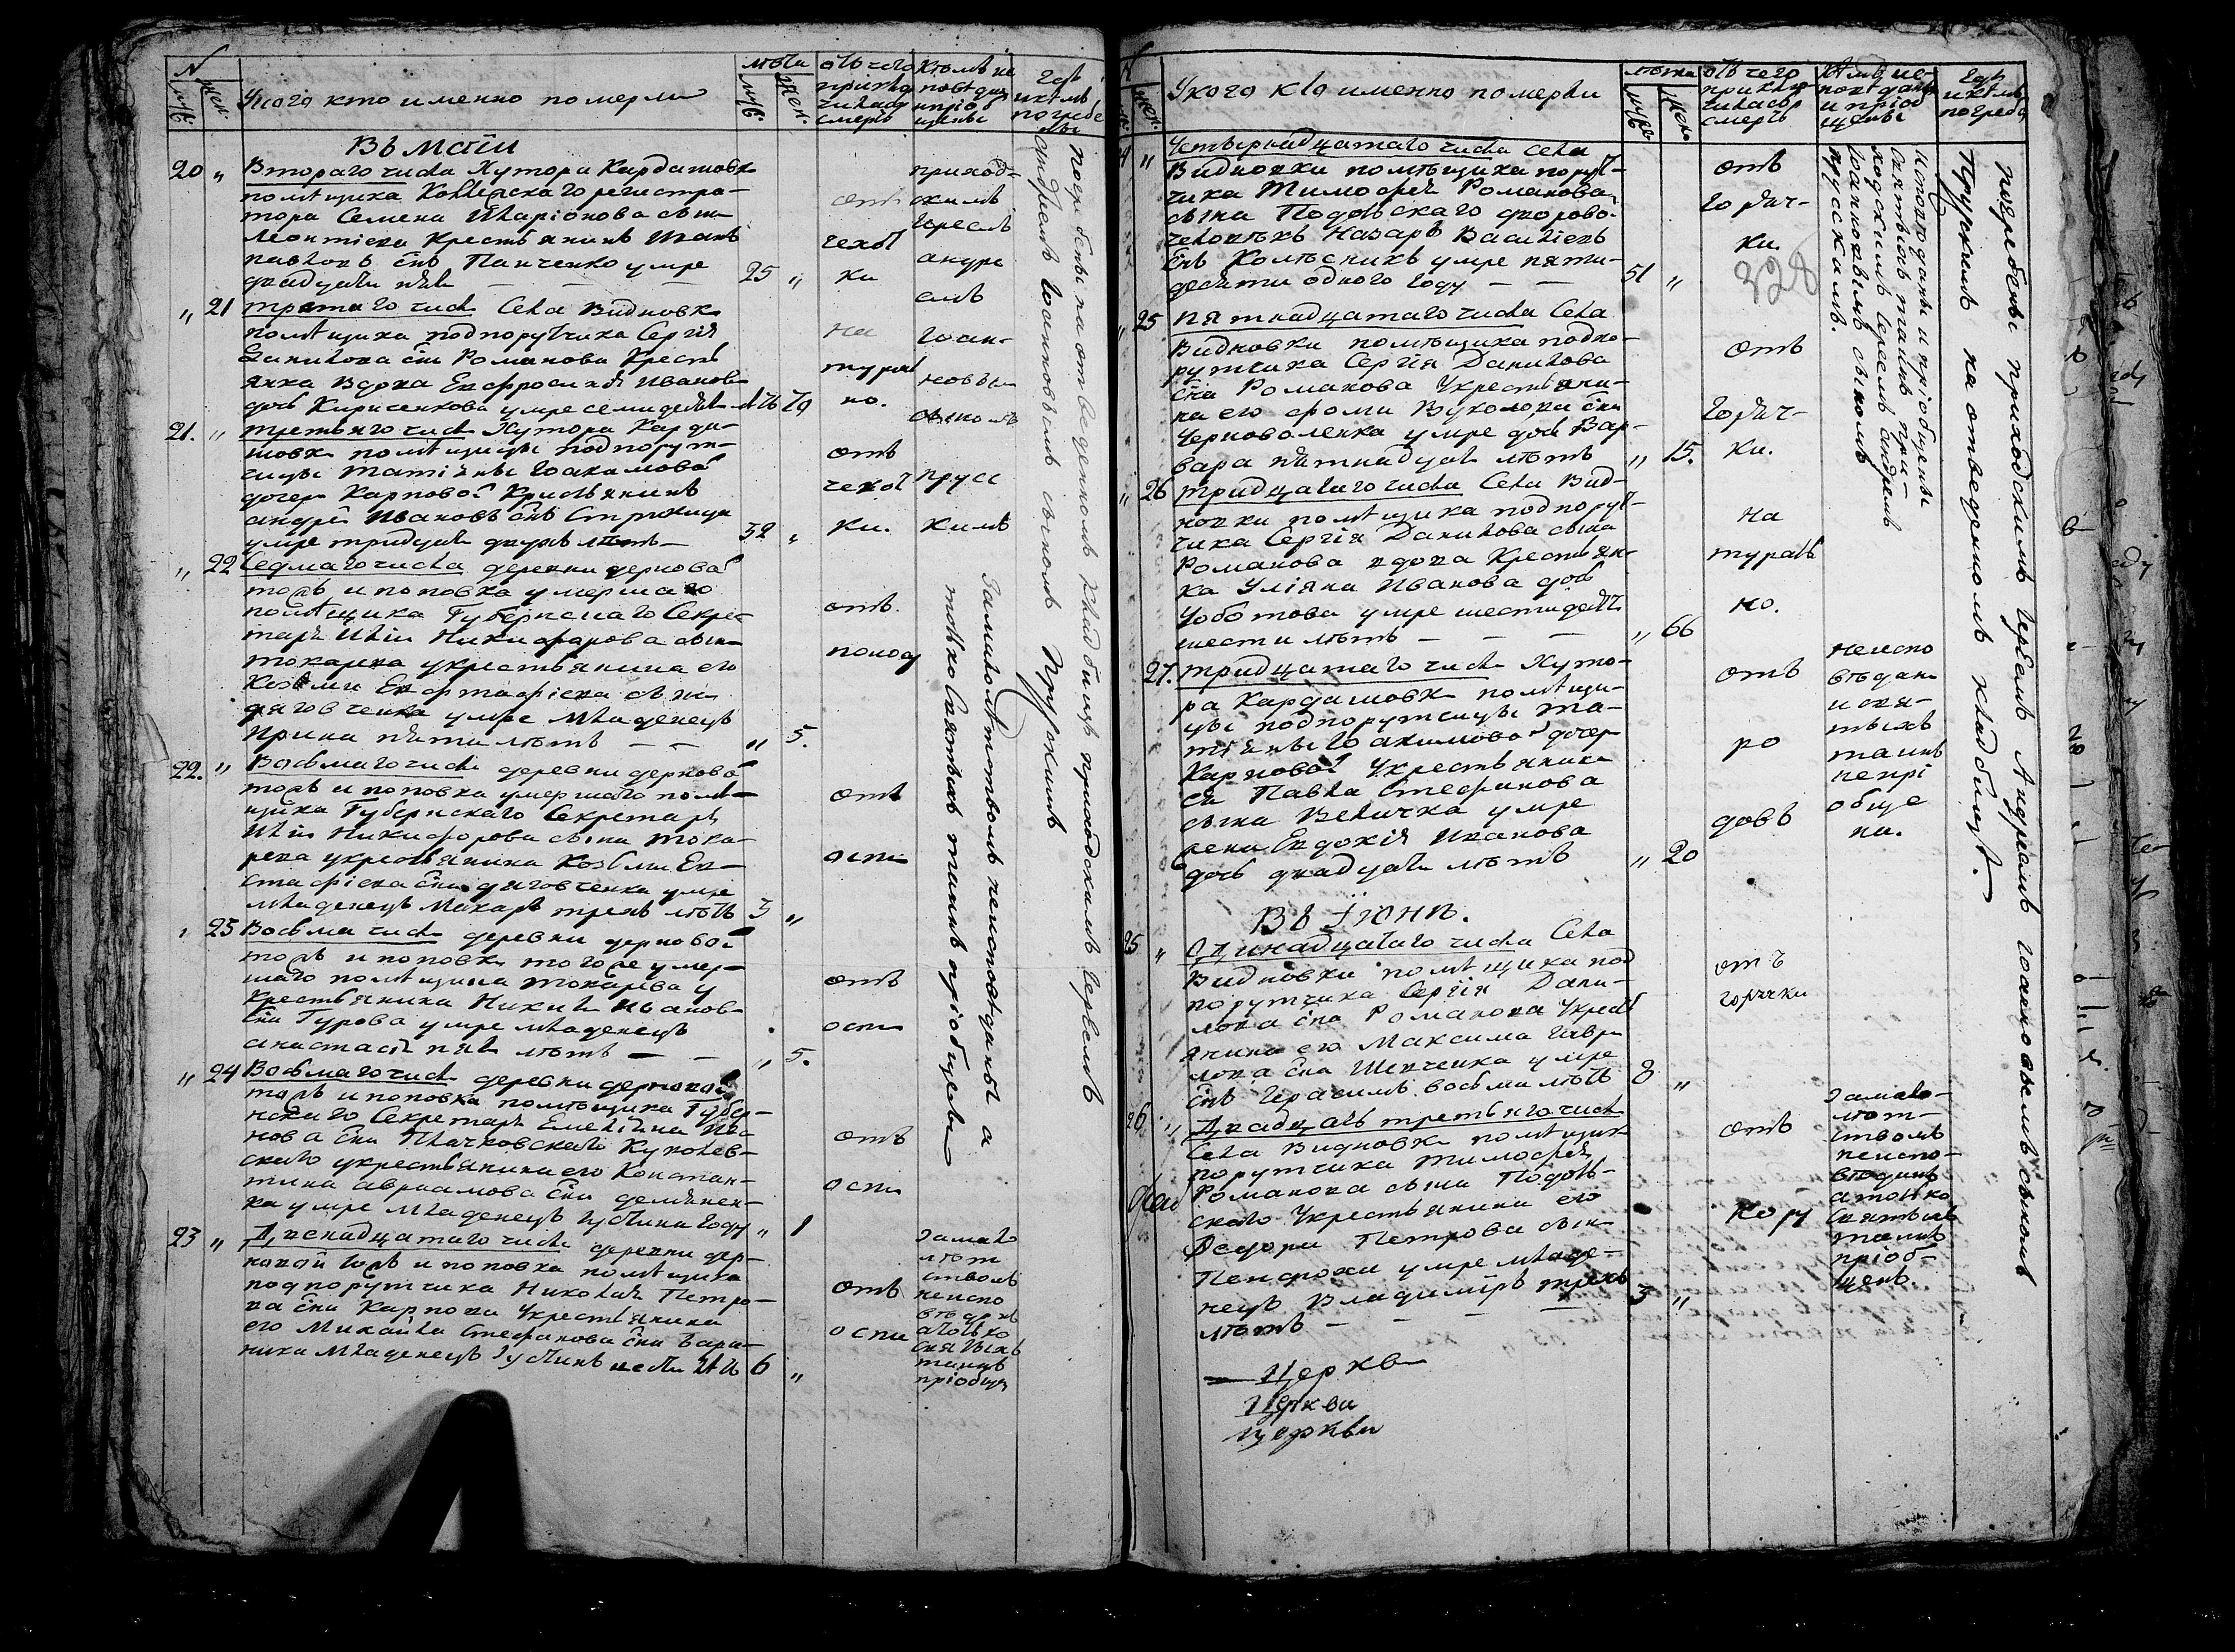 N
муж.
жен.
Укого кто именно померли
лѣта
муж.
жен.
отъ чего
приклю
чилась
смерть
Кѣмъ ис
повѣдан
и пріоб
щены
Где
и кѣмъ
погребе
ны
Въ маіи
20 „ Втораго числа Хутора Кардашовк
помѣщика Коллескаго регистра-
тора Семена Иларіонова сын
Леонтіева Крестьянинъ Иванъ
павловъ снъ Панченко умре
двадцати пяти 25 „
отъ
чехот
ки
„ 21 третаго числа Села Видновки
помѣщика подпорутчика Сергія
Данилова сна Романова Крест
янка Вдова Евфросинія Иванова
дочь Кирисенкова умре семидесят лѣтъ 70
на
турал
но.
приход-
скимъ
Іереемъ
андре
емъ
Іоан-
новы
сыномъ
Прусс
кимъ
21. „ третьяго числа Хутора Карда-
шовки помѣщицы подпорут-
чицы татіяны Іоакимовой
дочери Карповой Крестьянинъ
андрей Ивановъ снъ Стрижица
умре тридцати двухъ лѣтъ 32 „
отъ
чехот
ки.
„ 22 Седмаго числа деревни черной
торъ и поповка умершаго
помѣщика Губернскаго Секре-
таря Ильи Никифорова сына
токарева укрестьянина его
Козьми Евстафіева сына
дяговченка умре младенецъ
Ирина пяти лѣтъ „ 5.
отъ
поносу
22. „ Восьмаго числа деревни черной
торъ и поповка умершаго помѣ-
щика Губернскаго Секретаря
Ильи Никифорова сына Тока-
рева укрестьянина Козьми Ев-
стафіева сна дяговченка умре
младенецъ Макаръ трехъ лѣтъ 3 „
отъ
оспи
„ 23 Восьма числа деревни черной
торъ и поповки тогоже умер-
шаго помѣщика токарева у
крестьянина Никиты Иванов
сна Гурова умре младенецъ
анастасія пяти лѣтъ „ 5.
отъ
оспи
„ 24 Восьмаго числа деревни черной
торъ и поповка помѣщика Губер-
нскаго Секретаря Емеліяна Ива-
нова сна Плачковскаго Куколев-
скаго укрестьянина его Констан-
тина авраамова сна демянен-
ка умре младенецъ Іустина году „ 1
отъ
оспи
23 „ Двенадцатаго числа деревни чер-
ной торъ и поповка помѣщика
подпорутчика Николая Петро-
ва сна Карпова Укрестьянина
его Михайла Стефанова сна Вара-
ника младенецъ Іустинъ шести лѣтъ 6 „
отъ
оспи
замало
лѣт
ствомъ
неиспо
вѣданъ
атолько
Святыхъ
таинъ
пріобщ
Замалолѣтствомъ неисповѣданы а
только Святыхъ таинъ пріобщены
погребены на отведенномъ кладбищѣ приходскимъ Іереемъ
андреемъ Іоанновымъ сыномъ Прусскимъ
N
жен.
Укого кто именно померли
лѣта
муж
жен.
отъ чего
приклю
чилась
смерть
Кѣмъ ис-
повѣданы
и пріоб
щены
Где
и кѣмъ
погребе
„ Четырнадцатаго числа Села
Видновки помѣщика порут-
чика Тимофея Романова
сына Подольскаго дворово-
человѣкъ Назаръ Васильевъ
снъ Колѣсникъ умре пяти-
десяти одного году 51 „
отъ
Горяч-
ки.
328
„ 25 Пятнадцатаго числа Села
Видновки помѣщика подпо-
рутчика Сергія Данилова
сна Романова Укрестьяни-
на его Фоми Вуколова сна
Черноволенка умре дочь Вар-
вара пятнадцати лѣтъ „ 15.
отъ
Горяч-
ки.
„ 26 тридцатаго числа Села Вид-
новки помѣщика подпорут-
чика Сергія Данилова сына
Романова вдова Крестьян-
ка Уліяна Иванова дочь
Чоботова умре шестидесят
шести лѣтъ „ 66
на
турал
но.
27. тридцатаго числа Хуто-
ра Кардашовки помѣщи-
цы подпорутчицы та-
тіяны Іоакимовой дочер
Карповой Укрестьянина
ея Павла Стефанова
сына Величка умре
жена Евдокія Иванова
дочь двадцати лѣтъ „ 20
отъ
ро
довъ
неиспо
вѣдана
и свя-
тыхъ
таинъ
непрі
обще
на.
Въ Іюнѣ.
25 „ Одинадцатаго числа Села
Видновки помѣщика под
порутчика Сергія Дани-
лова сна Романова Укресть
янина его Максима Гавр
лова сна Шевченка умре
снъ Герасимъ восьми лѣтъ 8 „
отъ
горячки
26 „ Двадцать третьяго числа
Села Видновки помѣщик
порутчика Тимофея
Романова сына Подоль-
скаго Укрестьянина его
Федора Петрова сын
умре младе-
нецъ Владимиръ трехъ
лѣтъ 3 „
отъ
Кору
Замало-
лѣт-
ствомъ
неиспо-
вѣданъ
атолько
Святыхъ
таинъ
пріоб-
щенъ.
Исповѣданы и пріобщены
Святыхъ таинъ при-
ходскимъ Іереемъ андреемъ
Іоанновымъ сыномъ
Прусскимъ.
погребены приходскимъ Іереемъ Андреемъ Іоанновымъ сыномъ
Прусскимъ на отведенномъ кладбищѣ.
Церкв
Церкви
церкви